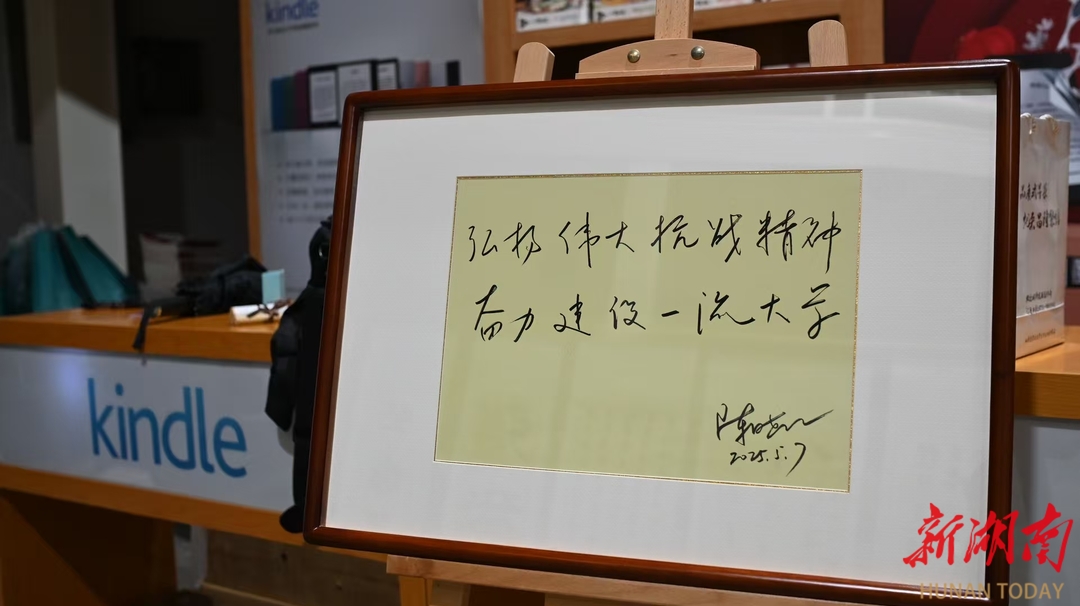 kindle
kindle
弘扬伟大抗战精神
奋力建设一流大学
陈晓红
2025.5.7
新湖南
HUNAN TODAY